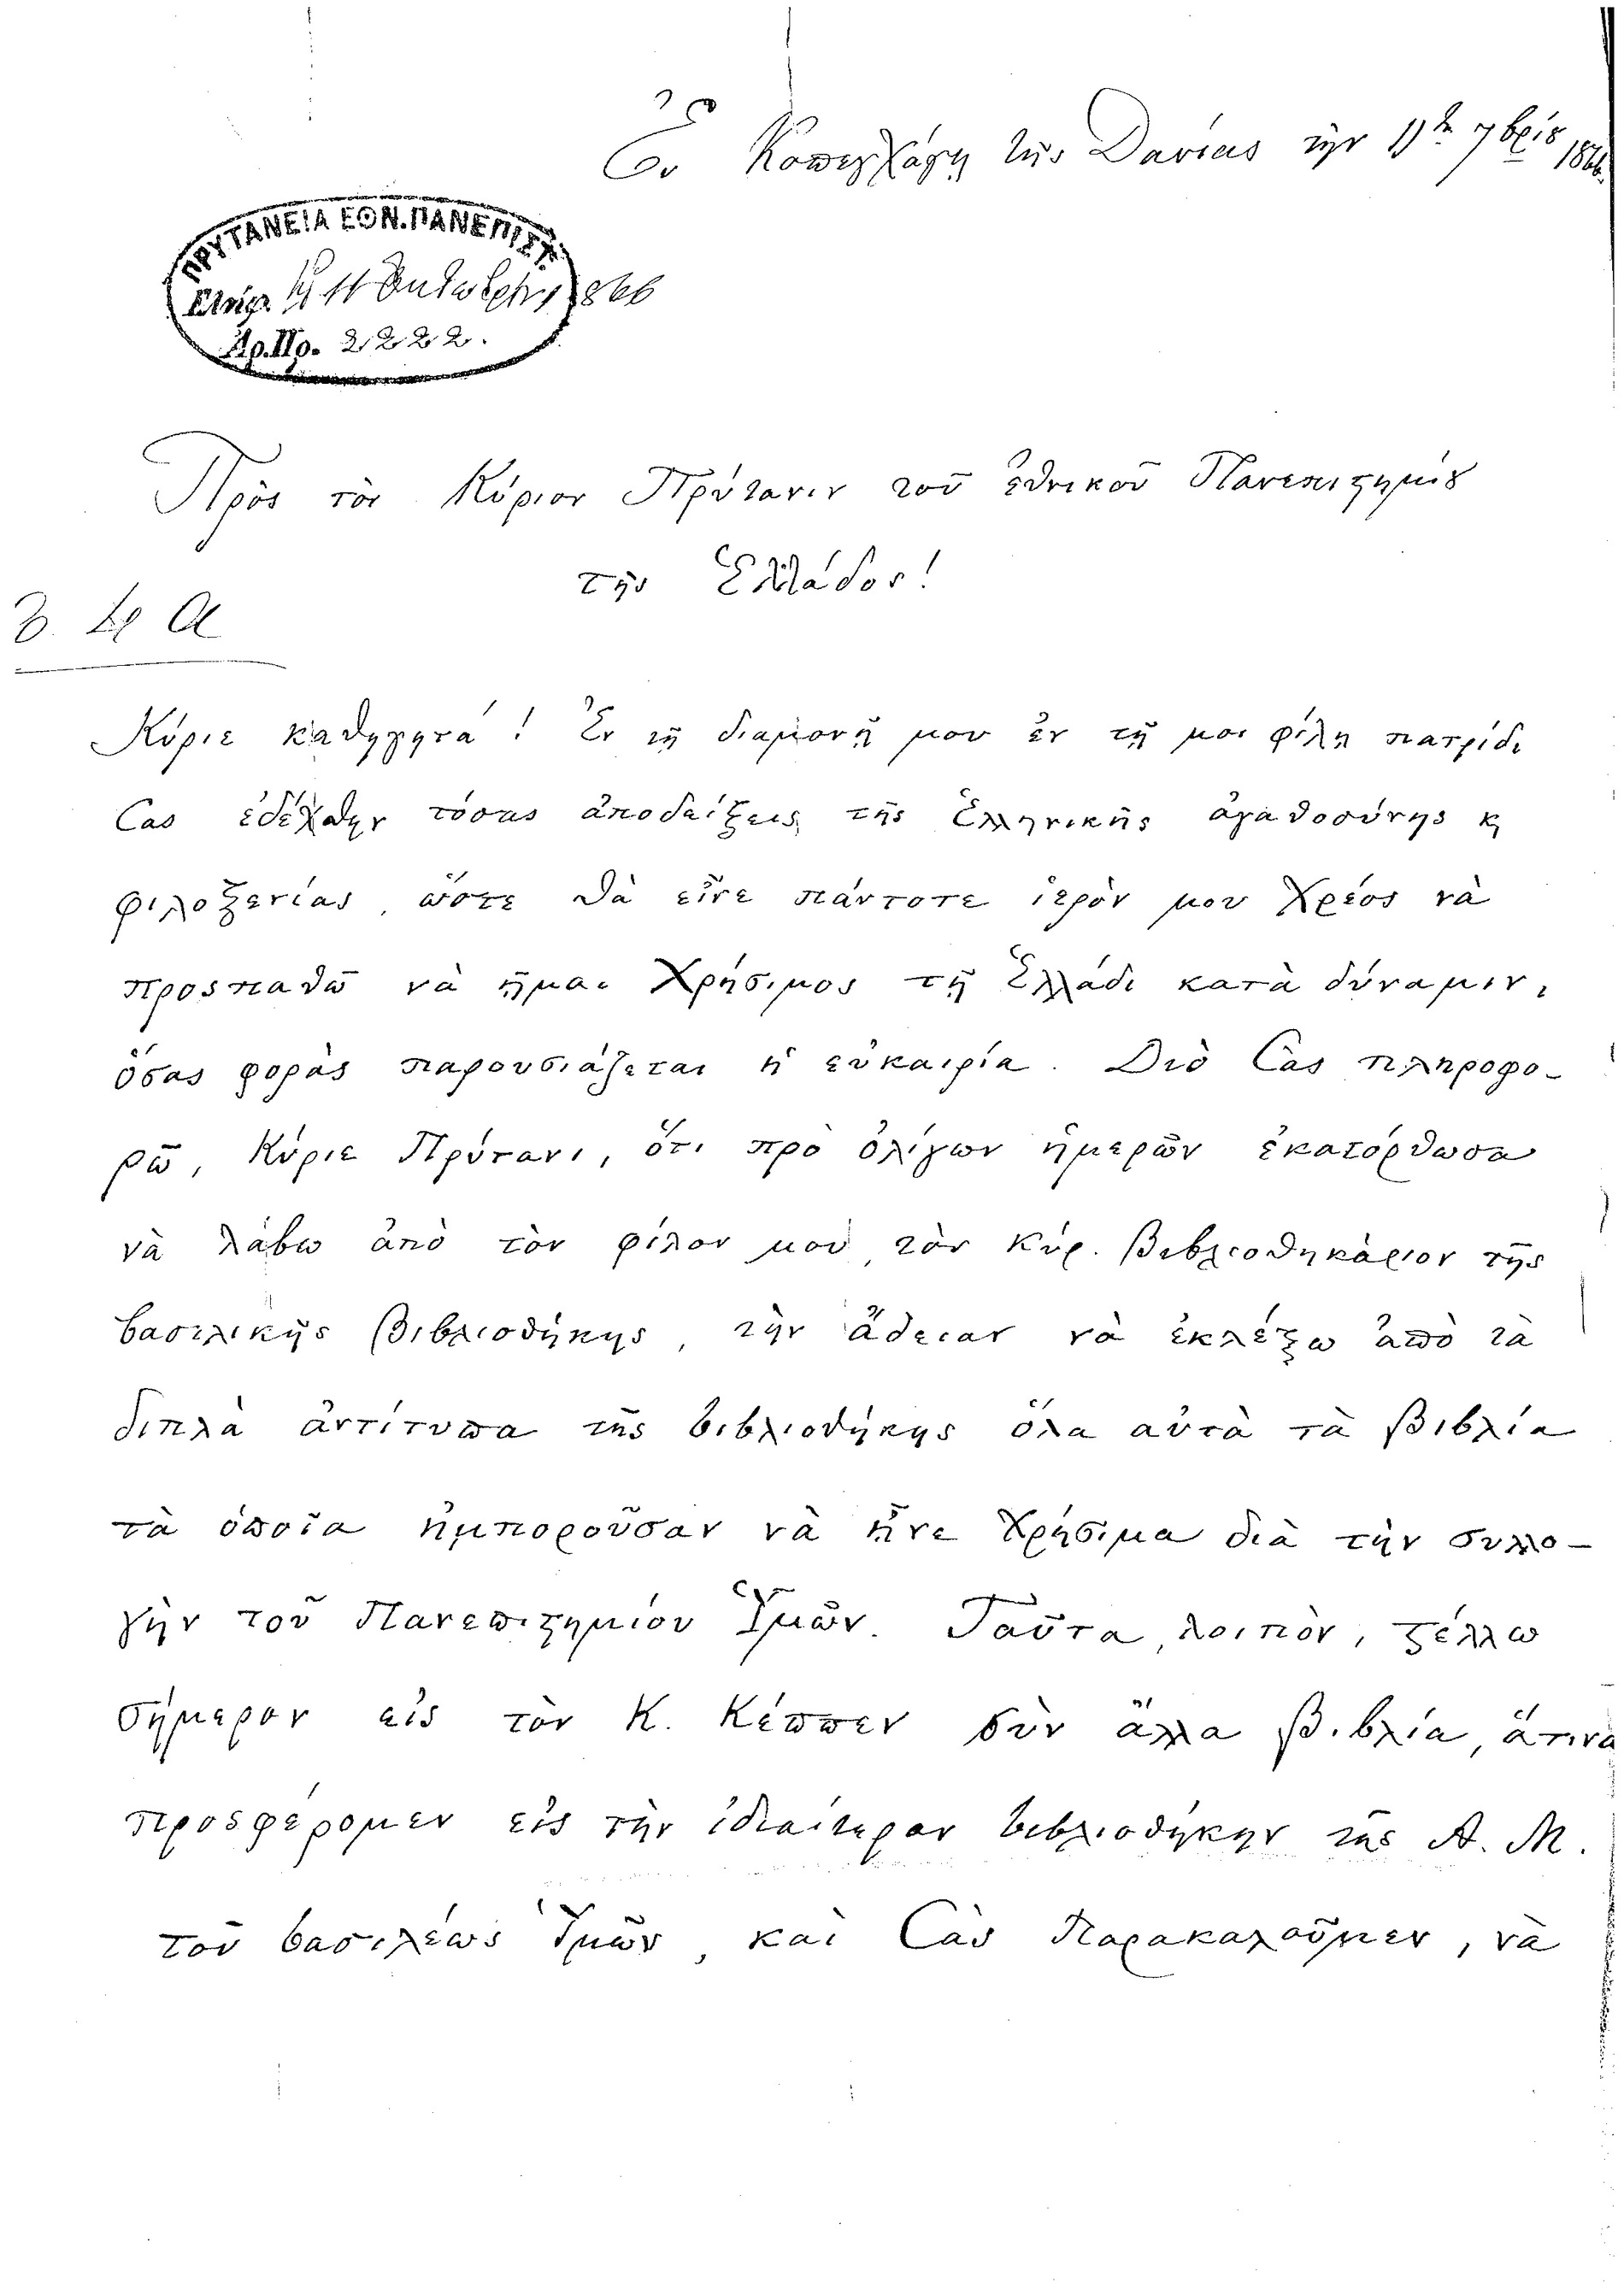 Ἐν Κοπεγχάγῃ τῆς Δανίας τὴν 11ην 7βρίου 1866.
ΠΡΥΤΑΝΕΙΑ ΕΘΝ. ΠΑΝΕΠΙΣΤ.
Ἐλήφ. τῇ 11 Ὀκτωβρ. 1866
Ἀρ. Πρ. 2222.
Πρὸς τὸν Κύριον Πρύτανιν τοῦ ἐθνικοῦ Πανεπιστημίου
τῆς Ἑλλάδος!
Κύριε καθηγητά! Ἐν τῇ διαμονῇ μου ἐν τῇ μοι φίλῃ πατρίδι
Σας ἐδέχθην τόσας ἀποδείξεις τῆς Ἑλληνικῆς ἀγαθοσύνης κ
φιλοξενίας, ὥστε θὰ εἶνε πάντοτε ἱερὸν μου χρέος νὰ
προσπαθῶ νὰ ἦμαι χρήσιμος τῇ Ἑλλάδι κατὰ δύναμιν,
ὅσας φορὰς παρουσιάζεται ἡ εὐκαιρία. Διὸ Σὰς πληροφο-
ρῶ, Κύριε Πρύτανι, ὅτι πρὸ ὀλίγων ἡμερῶν ἐκατόρθωσα
νὰ λάβω ἀπὸ τὸν φίλον μου, τὸν κύρ. βιβλιοθηκάριον τῆς
βασιλικῆς βιβλιοθήκης, τὴν ἄδειαν νὰ ἐκλέξω ἀπὸ τὰ
διπλὰ ἀντίτυπα τῆς βιβλιοθήκης ὅλα αὐτὰ τὰ βιβλία
τὰ ὁποῖα ἠμποροῦσαν νὰ ἦνε χρήσιμα διὰ τὴν συλλο-
γὴν τοῦ Πανεπιστημίου Ὑμῶν. Ταῦτα, λοιπὸν, στέλλω
σήμερον εἰς τὸν Κ. Κέππεν σὺν ἄλλα βιβλία, ἅτινα
προσφέρομεν εἰς τὴν ἰδιαίτεραν βιβλιοθήκην τῆς Α. Μ.
τοῦ βασιλέως Ὑμῶν, καὶ Σὰς παρακαλοῦμεν, νὰ